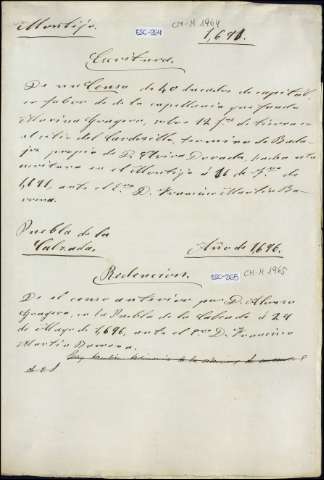 Montijo. ESC-264 CM-M 1964 1,691.
Escritura.
De un Censo de 40 ducados de capital
en fabor de la capellanía que fundó
Marina Gragera, sobre 12 f.s de tierra en
el sitio del termino de Bada-
joz propia de D. Dorado, fecha
en el Montijo á 16 de de
1,691, ante el D. Francisco Martin Ba-
rrena.
Puebla de la
Calzada. Año de 1,696.
Redencion. ESC-265 CM-M 1965
De el censo anterior por D. Alvaro
Gragera, en la Puebla de la Calzada á 24
de Mayo de 1,696, ante el D. Francisco
Martin Barrena.